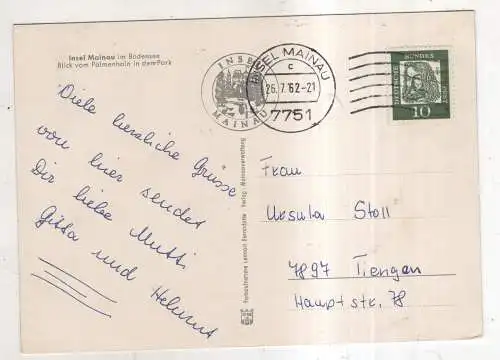 Insel Mainau im Bodensee
Blick vom Palmenhain in den Park
INSEL
MAINAU
INSEL MAINAU
c
26.7.62-21
7751
DEUTSCHE
BUNDESPOST
10
Viele herzliche Grüsse
von hier sendet
Dir liebe Mutti
Gitta und Helmut
Verlag: Mainauverwaltung
Frau
Ursula Stoll
7897 Tiengen
Hauptstr. 78